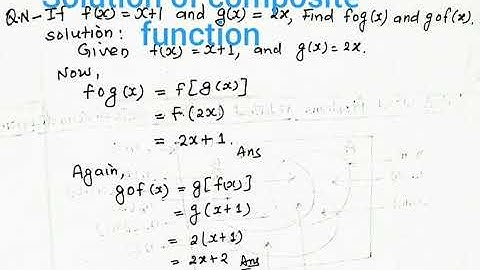 Solution of composite
function
Q.N- If f(x) = x+1 and g(x) = 2x, Find fog(x) and gof(x).
solution:
Given f(x) = x+1, and g(x) = 2x.
Now,
fog(x) = f[g(x)]
= f(2x)
= 2x+1.
Ans
Again,
gof(x) = g[f(x)]
= g(x+1)
= 2(x+1)
= 2x+2 Ans